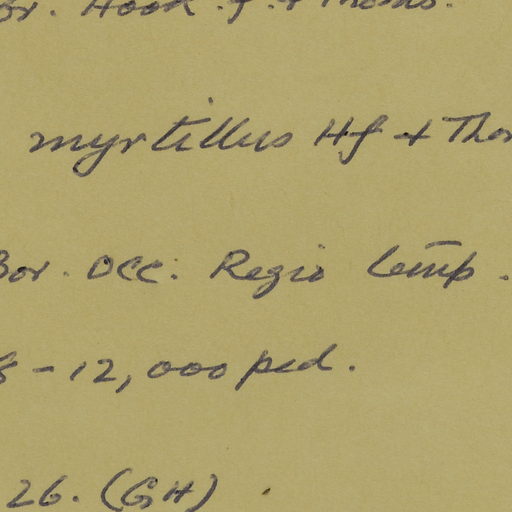 Br. Hook. f. & Thoms.
myrtillus Hf & Thom
Bor. Occ. Regio temp.
8-12,000 ped.
26. (GH).